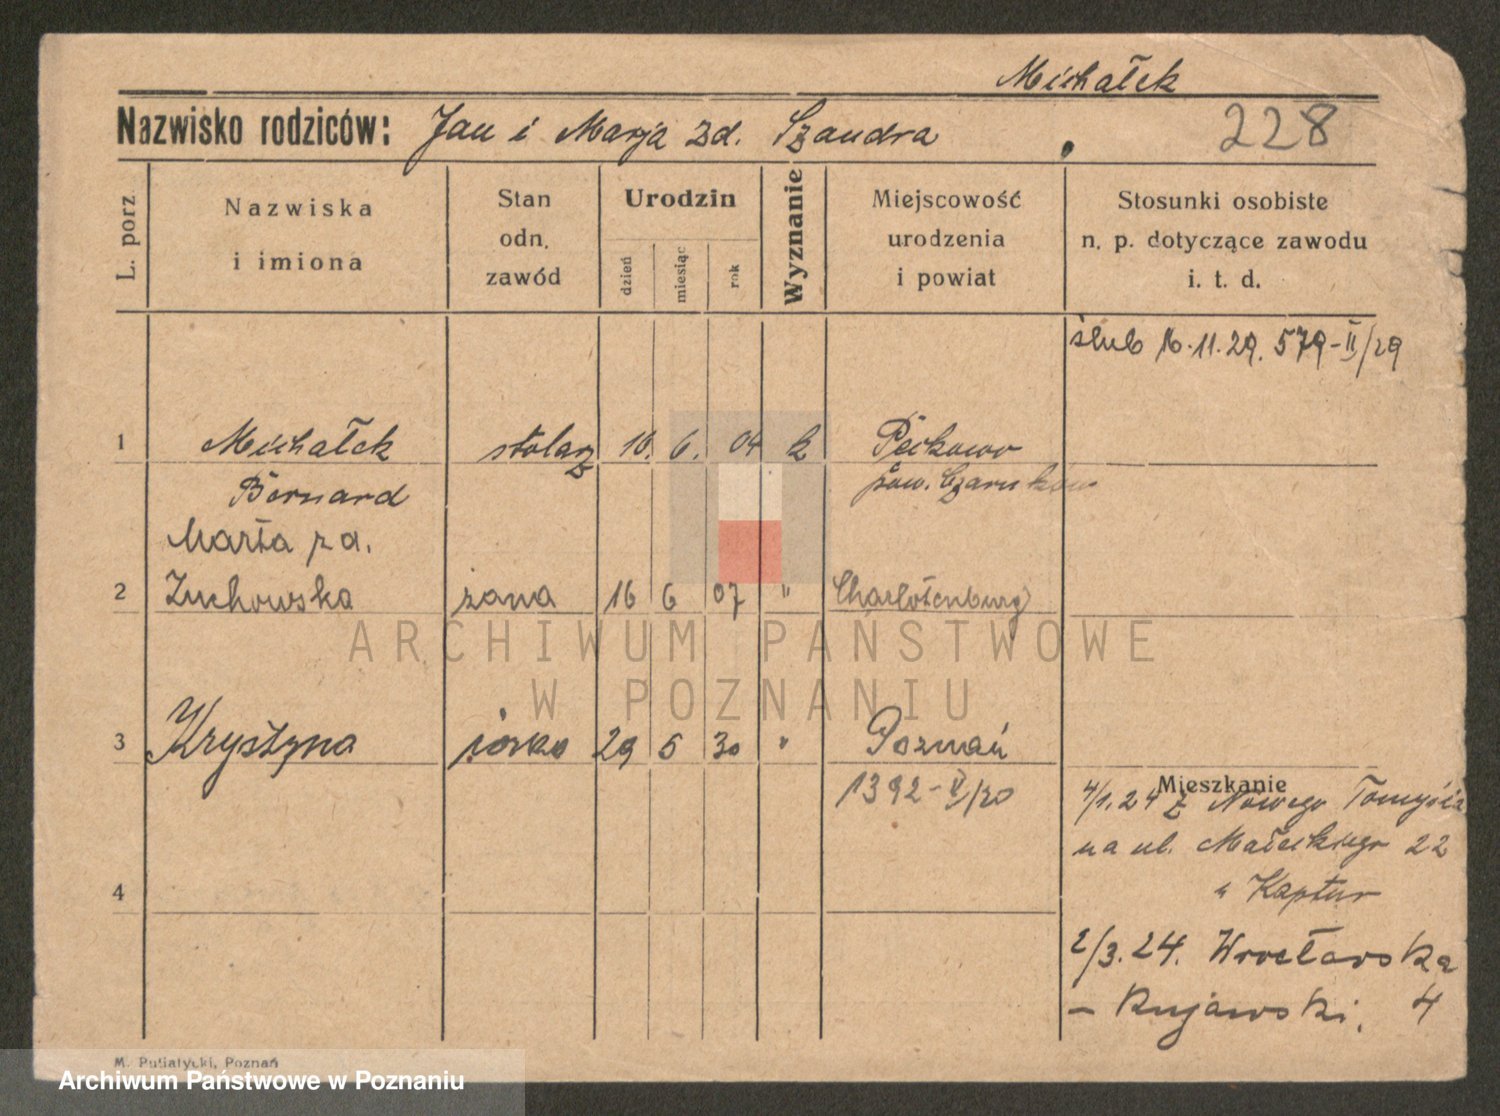 Michałek
Nazwisko rodziców: Jan i Marja zd. Szandra 228
L. porz
Nazwiska
i imiona
Stan
odn.
zawód
Urodzin
dzień
miesiąc
rok
Wyznanie
Miejscowość
urodzenia
i powiat
Stosunki osobiste
n. p. dotyczące zawodu
i. t. d.
ślub 16.11.29. 579-II/29
1 Michałek stolarz 16. 6. 04 k Peckowo
Bernard pow. Czarnków
Marta z d.
2 Zuchowska żona 16 6 07 " Charlotenburg
ARCHIWUM PAŃSTWOWE
W POZNANIU
3 Krystyna córka 29 5 30 " Poznań
1392-V/30
Mieszkanie
4/1.24 z Nowego Tomyśla
na ul. Małeckiego 22
4
u Kaptur
2/3.24. Wrocławska
- Kujawski. 4
M. Putiatycki, Poznań
Archiwum Państwowe w Poznaniu